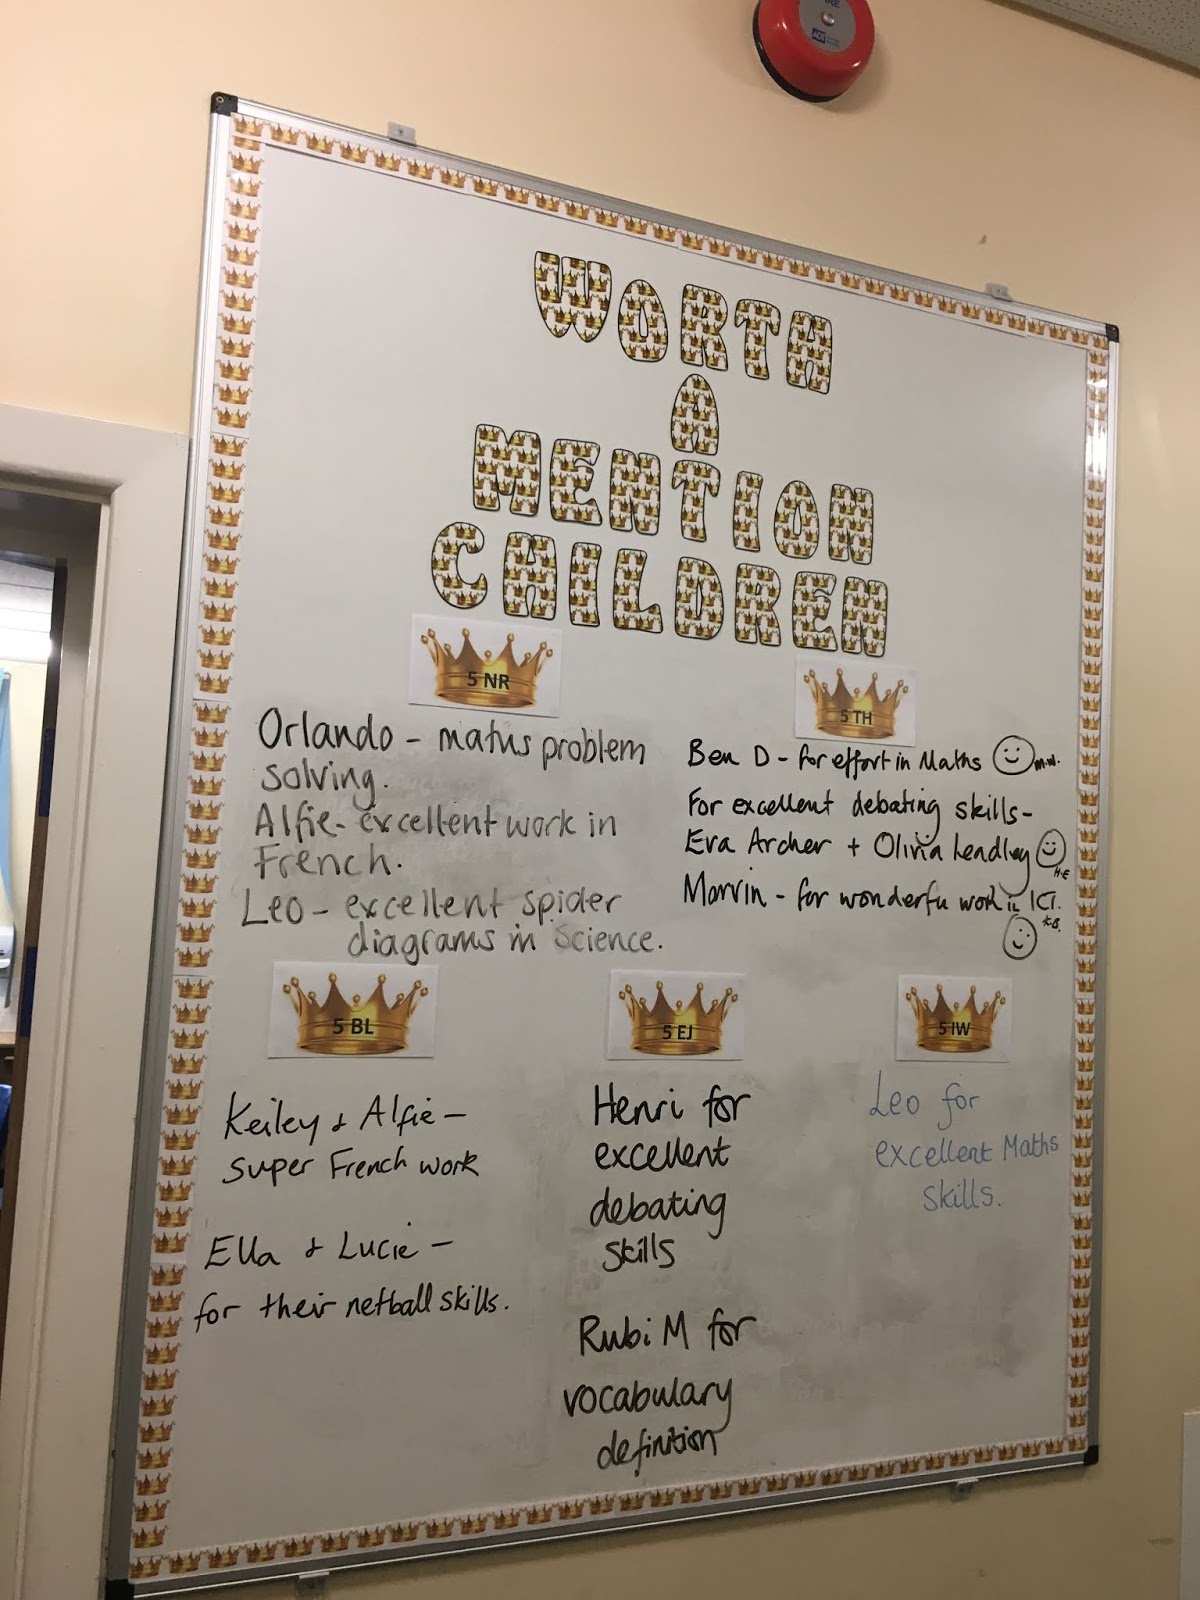 WORTH
A
MENTION
CHILDREN
5 NR
Orlando - maths problem
solving.
Alfie - excellent work in
French.
Leo - excellent spider
diagrams in Science.
5 TH
Ben D - for effort in Maths M.W.
For excellent debating skills -
Eva Archer + Olivia Leadley
H.E
Marvin - for wonderful work in ICT.
K.B.
5 BL
Keiley & Alfie -
super French work
Ella & Lucie -
for their netball skills.
5 EJ
Henri for
excellent
debating
skills
Rubi M for
vocabulary
definition
5 IW
Leo for
excellent Maths
skills.
FIRE
ADT